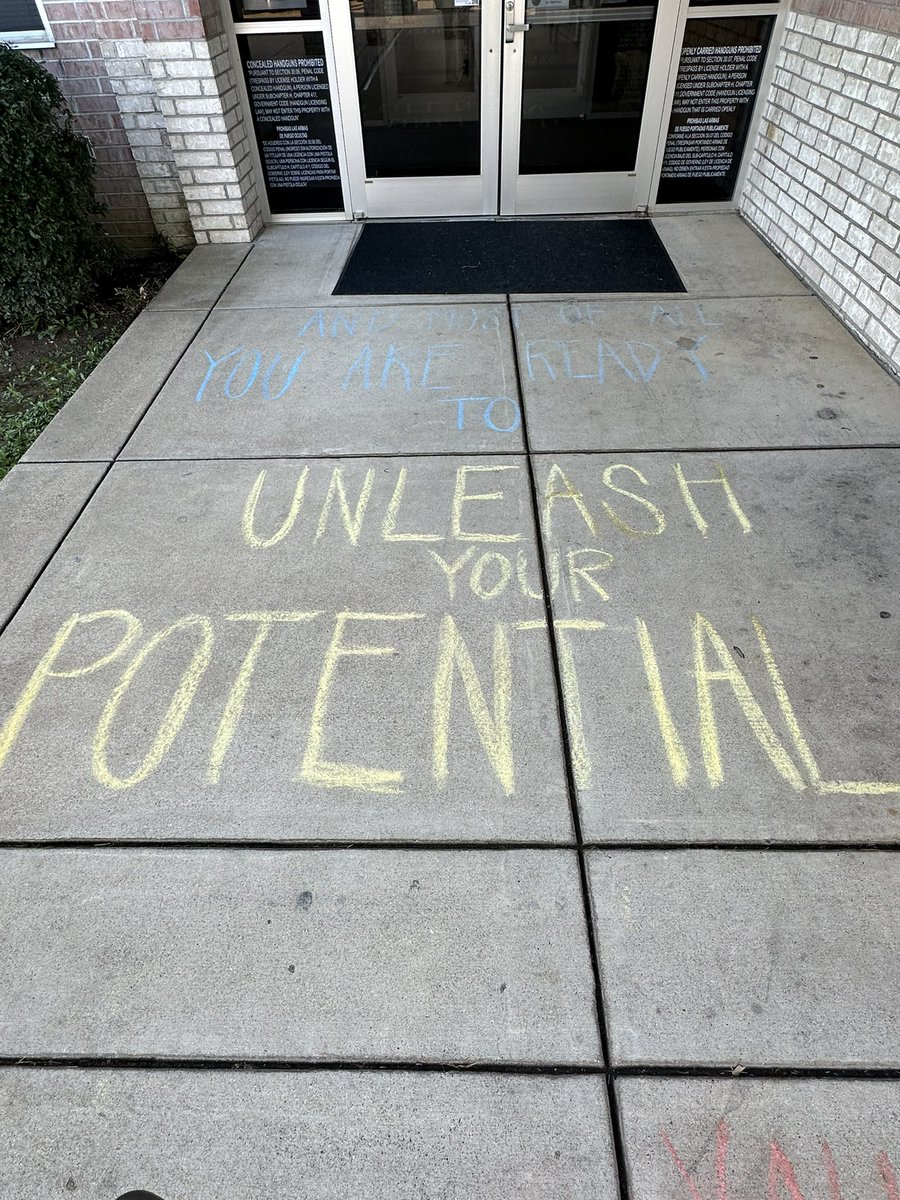 CONCEALED HANDGUNS PROHIBITED
"PURSUANT TO SECTION 30.06, PENAL CODE
(TRESPASS BY LICENSE HOLDER WITH A
CONCEALED HANDGUN), A PERSON
LICENSED UNDER SUBCHAPTER H, CHAPTER 411,
GOVERNMENT CODE (HANDGUN LICENSING
LAW), MAY NOT ENTER THIS PROPERTY WITH
A CONCEALED HANDGUN"
PROHIBIDAS LAS ARMAS
DE FUEGO OCULTAS
OPENLY CARRIED HANDGUNS PROHIBITED
"PURSUANT TO SECTION 30.07, PENAL CODE
(TRESPASS BY LICENSE HOLDER WITH AN
OPENLY CARRIED HANDGUN), A PERSON
LICENSED UNDER SUBCHAPTER H, CHAPTER 411,
GOVERNMENT CODE (HANDGUN LICENSING
LAW), MAY NOT ENTER THIS PROPERTY WITH A
HANDGUN THAT IS CARRIED OPENLY"
PROHIBIDAS LAS ARMAS
DE FUEGO PORTADAS PUBLICAMENTE
AND MOST OF ALL
YOU ARE READY
TO
UNLEASH
YOUR
POTENTIAL